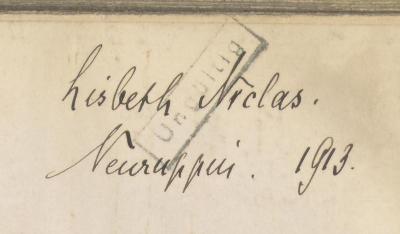 Lisbeth Niclas.
Neuruppin. 1913.
Ungültig